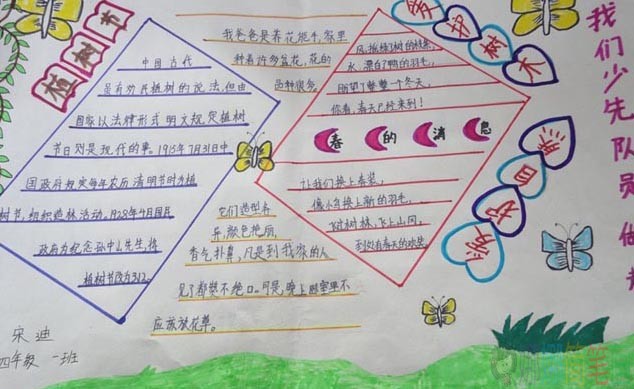 植树节
中国古代
虽有劝民植树的说法,但由
国家以法律形式明文规定植树
节日则是现代的事。1915年7月31日中
国政府规定每年农历清明节时为植
树节,组织造林活动。1928年4月国民
政府为纪念孙中山先生,将
植树节改为3.12。
我爸爸是养花能手,家里
种着许多盆花,花的
品种很多。
它们造型奇
异,颜色艳丽,
香气扑鼻,凡是到我家的人
见了都赞不绝口。可是,晚上卧室里不
应该放花草。
风,摇绿了树的枝条,
水,漂白了鸭的羽毛,
盼望了整整一个冬天,
你看,春天已经来到!
春的消息
让我们换上春装,
像小鸟换上新的羽毛,
飞过树林,飞上山冈,
到处有春天的欢笑。
爱护树木
我们少先队员做
宋迪
四年级 一班